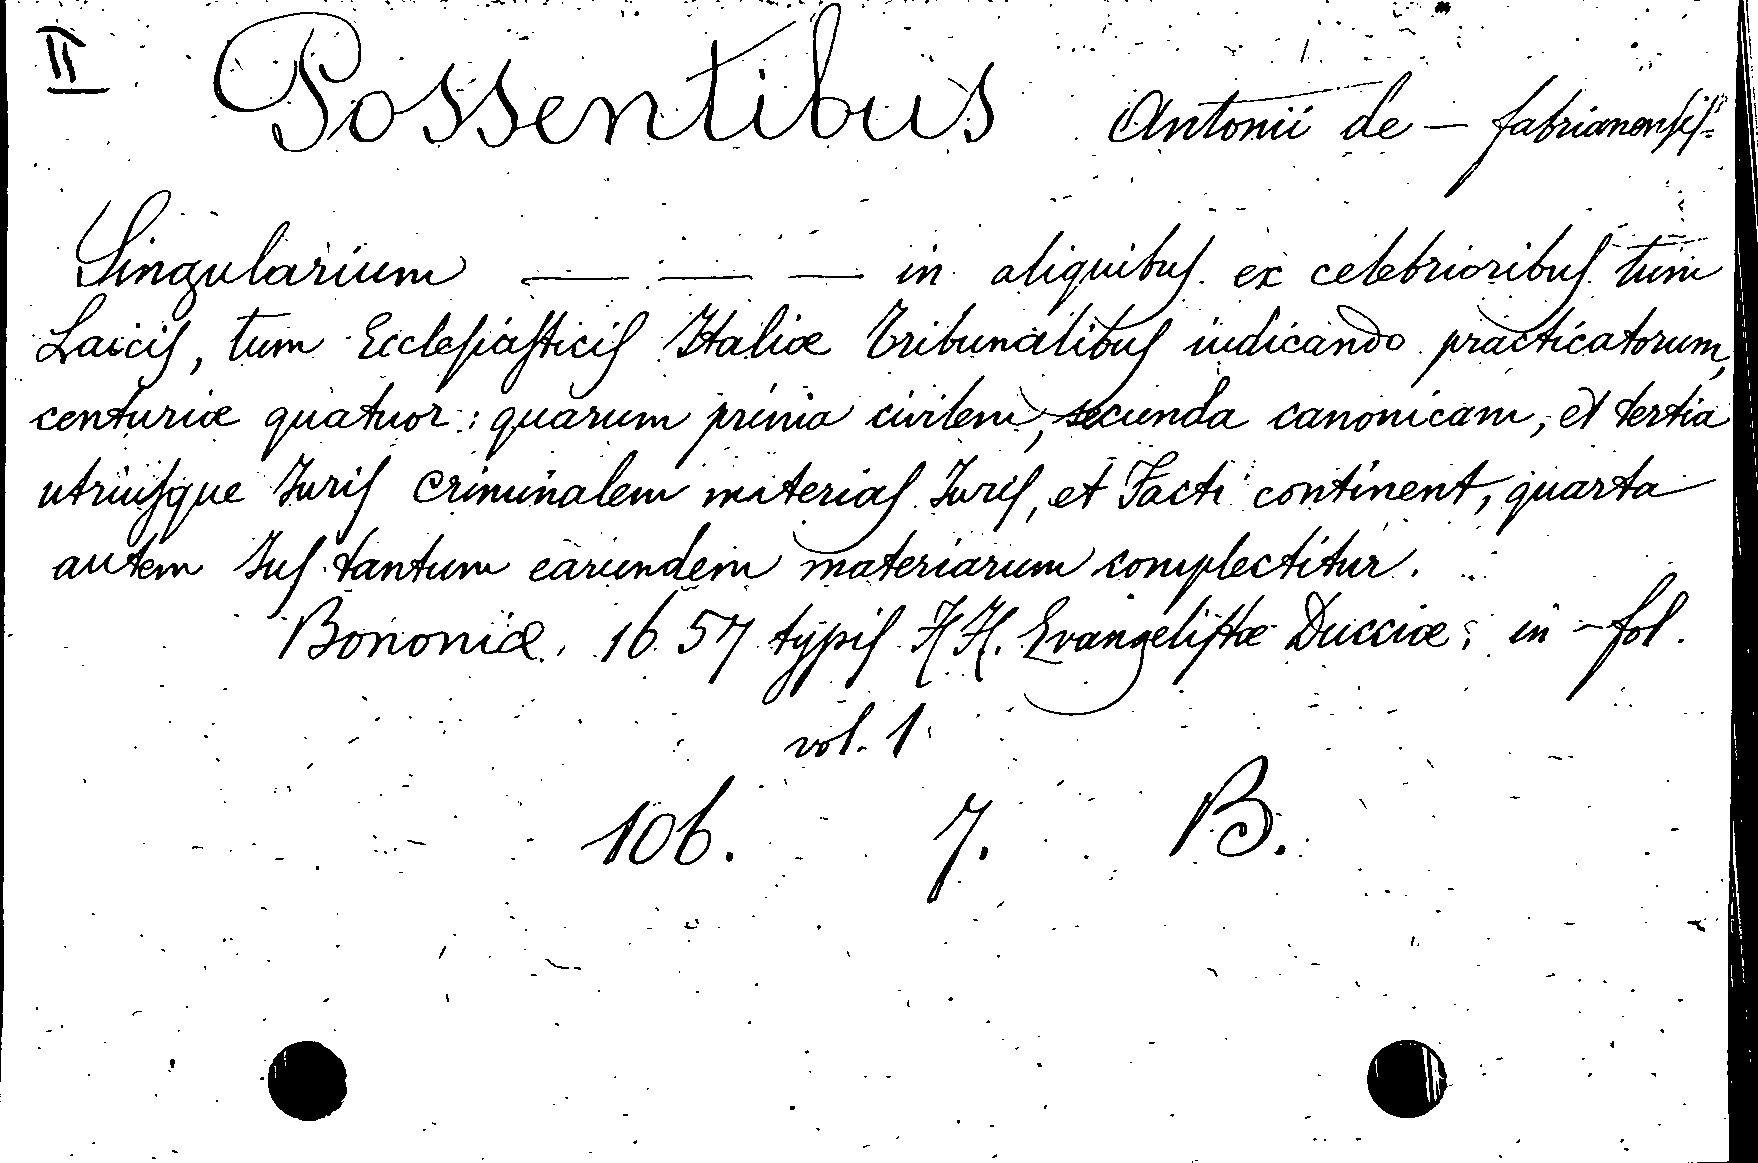 II
Possentibus Antonii de — fabrianensis
Singularium — — — in aliquibus ex celebrioribus tum
Laicis, tum Ecclesiasticis Italiæ Tribunalibus iudicando practicatorum,
centuriæ quatuor: quarum prima civilem, secunda canonicam, et tertia
utriusque Juris criminalem materias Juris, et Facti continent, quarta
autem Jus tantum earundem materiarum complectitur.
Bononiæ. 1657 typis HH. Evangelistæ Ducciæ; in-fol.
vol. 1.
106. 7. B.